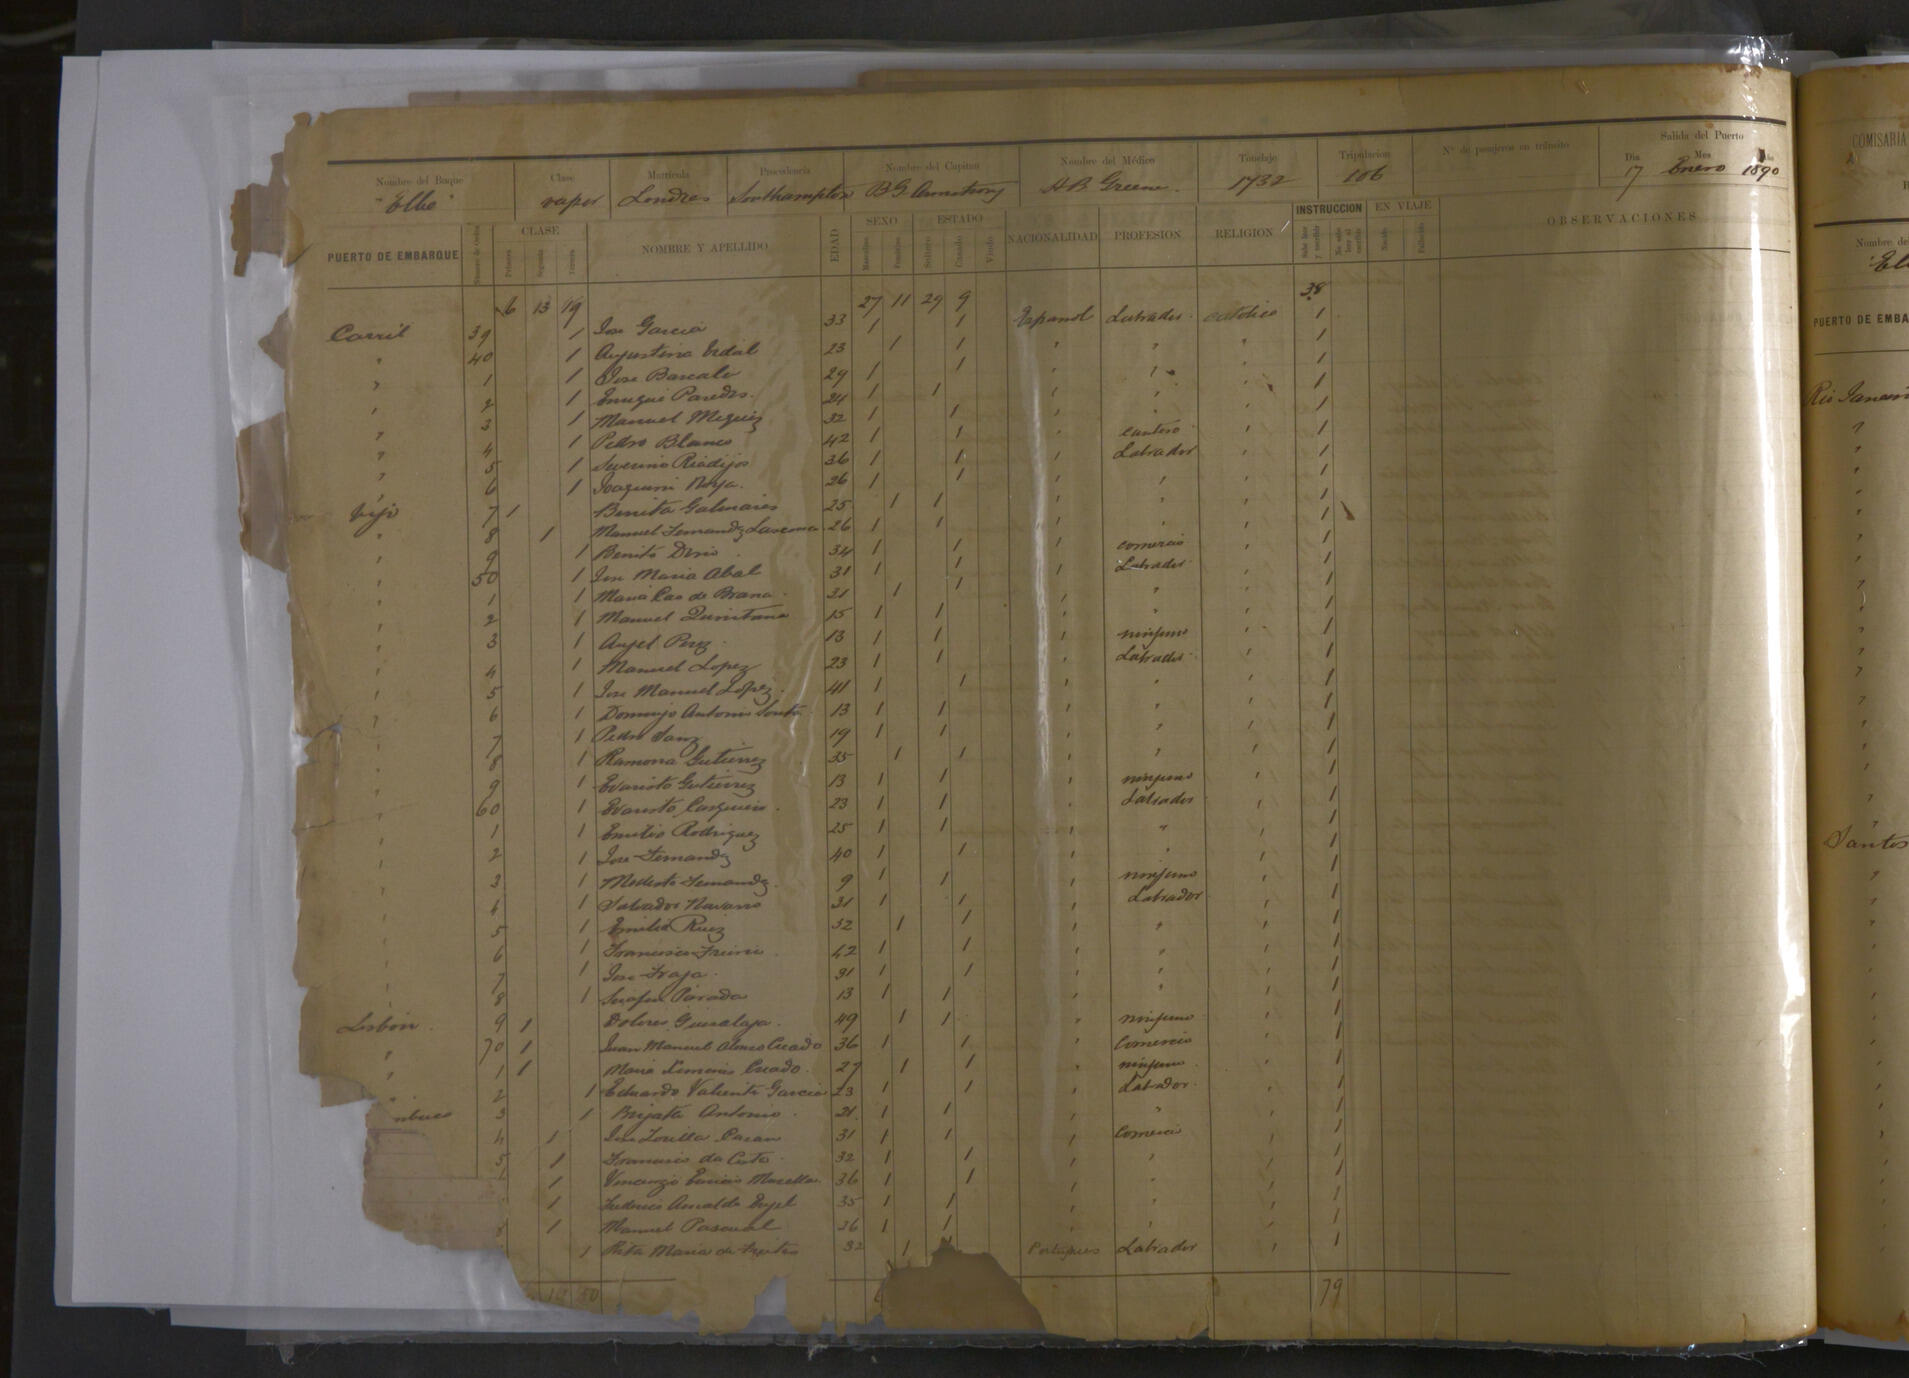 Nombre del Buque Clase Matrícula Procedencia Nombre del Capitan Nombre del Médico Tonelaje Tripulacion Nº de pasajeros en tránsito Salida del Puerto
Dia Mes Año
"Elbe" vapor Londres Southampton B G Armstrong H B Greene 1732 106 17 Enero 1890
PUERTO DE EMBARQUE Número de Orden CLASE NOMBRE Y APELLIDO EDAD SEXO ESTADO NACIONALIDAD PROFESION RELIGION INSTRUCCION EN VIAJE OBSERVACIONES
Primera Segunda Tercera Masculino Femenino Soltero Casado Viudo Sabe leer y escribir No sabe leer ni escribir Nacido Fallecido
6 13 19 27 11 29 9 38
Carril 39 1 Jose Garcia 33 1 1 Español Labrador catolico 1
" 40 1 Agustina Vidal 23 1 1 " " " 1
" 1 1 Jose Barcalo 29 1 1 " " " 1
" 2 1 Enrique Paredes 24 1 1 " " " 1
" 3 1 Manuel Miguez 32 1 1 " " " 1
" 4 1 Pedro Blanco 42 1 1 " cantero " 1
" 5 1 Severino Riadijos 36 1 1 " Labrador " 1
" 6 1 Joaquin Noya 26 1 1 " " " 1
Vigo 7 1 Benita Galinaires 25 1 1 " " " 1
" 8 1 Manuel Fernandez 26 1 1 " " " 1
" 9 1 Benito 34 1 1 " comercio " 1
" 50 1 Jose Maria Abal 31 1 1 " Labrador " 1
" 1 1 Maria Cao de Brana 31 1 1 " " " 1
" 2 1 Manuel Quintana 15 1 1 " " " 1
" 3 1 Angel Perez 13 1 1 " ninguno " 1
" 4 1 Manuel Lopez 23 1 1 " Labrador " 1
" 5 1 Jose Manuel Lopez 41 1 1 " " " 1
" 6 1 Domingo Antonio Souto 13 1 1 " " " 1
" 7 1 Pedro Sanz 19 1 1 " " " 1
" 8 1 Ramona Gutierrez 35 1 1 " " " 1
" 9 1 Evaristo Gutierrez 13 1 1 " ninguno " 1
" 60 1 Evaristo 23 1 1 " Labrador " 1
" 1 1 Emilio Rodriguez 25 1 1 " " " 1
" 2 1 Jose Fernandez 40 1 1 " " " 1
" 3 1 Modesto Fernandez 9 1 1 " ninguno " 1
" 4 1 Salvador Navarro 31 1 1 " Labrador " 1
" 5 1 Emilia Ruiz 32 1 1 " " " 1
" 6 1 Francisco Freire 42 1 1 " " " 1
" 7 1 Jose Fraga 31 1 1 " " " 1
" 8 1 Serafin Parada 13 1 1 " " " 1
Lisboa 9 1 Dolores 49 1 1 " ninguno " 1
" 70 1 Juan Manuel Alonso Criado 36 1 1 " Comercio " 1
" 1 1 Maria Criado 27 1 1 " ninguno " 1
" 2 1 Eduardo Valiente Garcia 23 1 1 " Labrador " 1
nbuco 3 1 Brijata Antonio 21 1 1 " " " 1
4 1 Jose Zorilla 31 1 1 " Comercio " 1
5 1 Francisco da Costa 32 1 1 " " " 1
1 Vincenzo 36 1 1 " " " 1
1 Federico Arnaldo 35 1 1 " " " 1
8 1 Manuel Pascual 26 1 1 " " " 1
1 Rita Maria de Freitas 32 1 Portugues Labrador " 1
50 79
COMISARIA
Nombre de
PUERTO DE EMBA
Rio Janeiro
Santos